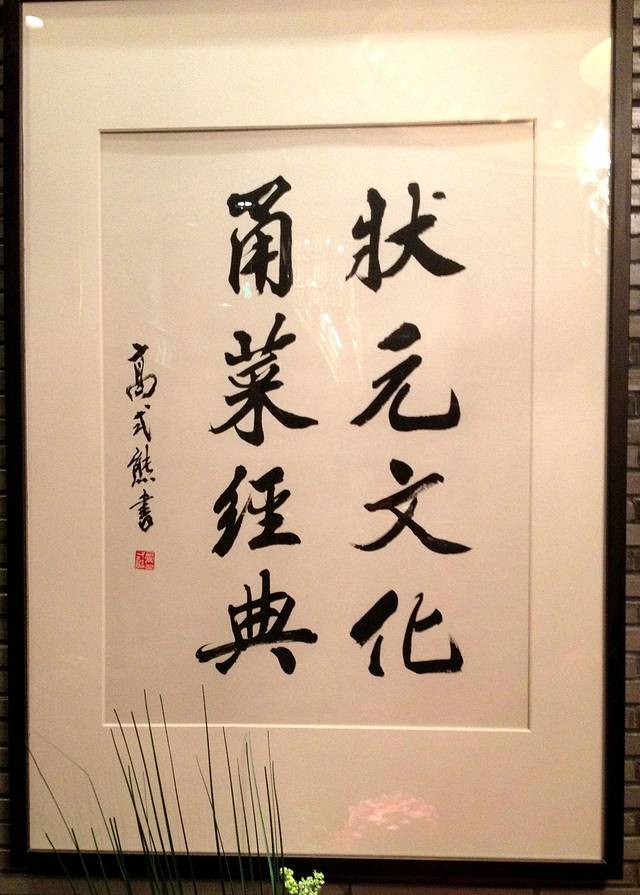 狀元文化
甬菜經典
高式熊書